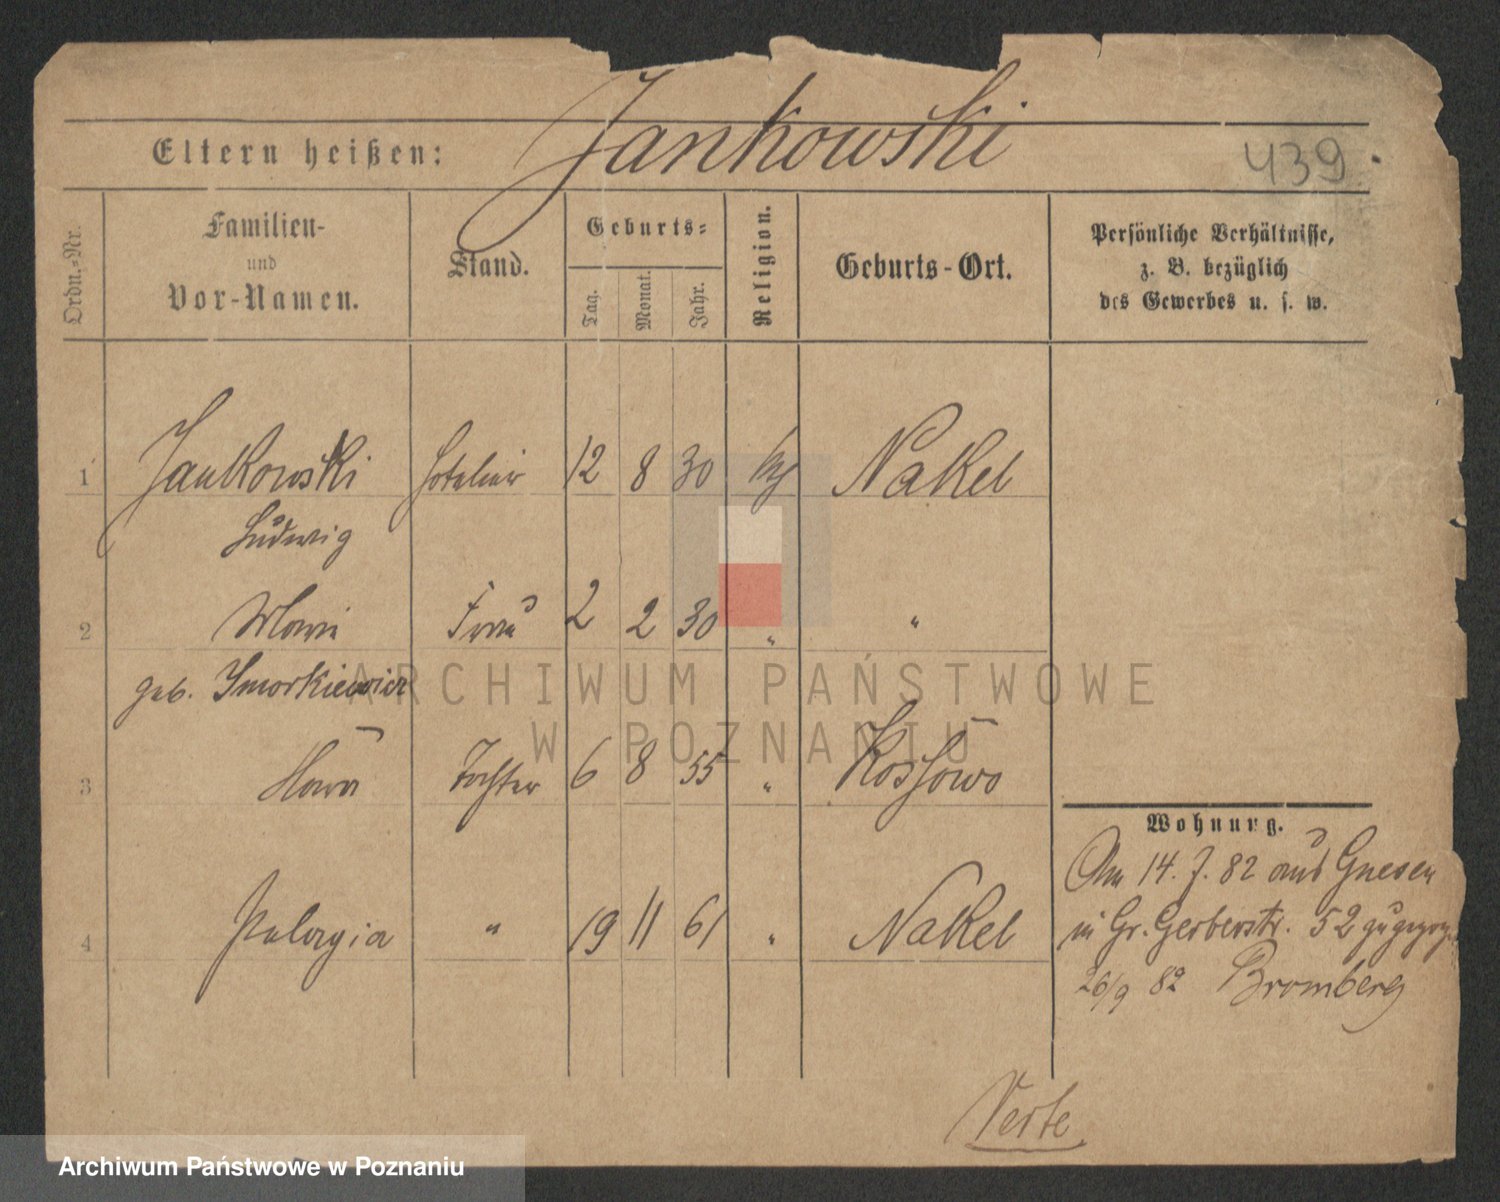 Jankowski
Eltern heißen:
439.
Ordn.-Nr.
Familien-
und
Vor-Namen.
Stand.
Geburts-
Tag.
Monat.
Jahr.
Religion.
Geburts-Ort.
Persönliche Verhältnisse,
z. B. bezüglich
des Gewerbes u. s. w.
1 Jankowski Hotelier 12 8 30 Nakel
Ludwig
2 Maria Frau 2 2 30 " "
geb. Smorkiewicz
3 Tochter 6 8 55 " Kossowo
4 Pelagia " 19 11 61 " Nakel
Wohnung.
Am 14. 7. 82 aus Gnesen
in Gr. Gerberstr. 52
26/9 82 Bromberg
Verte.
ARCHIWUM PAŃSTWOWE
W POZNANIU
Archiwum Państwowe w Poznaniu